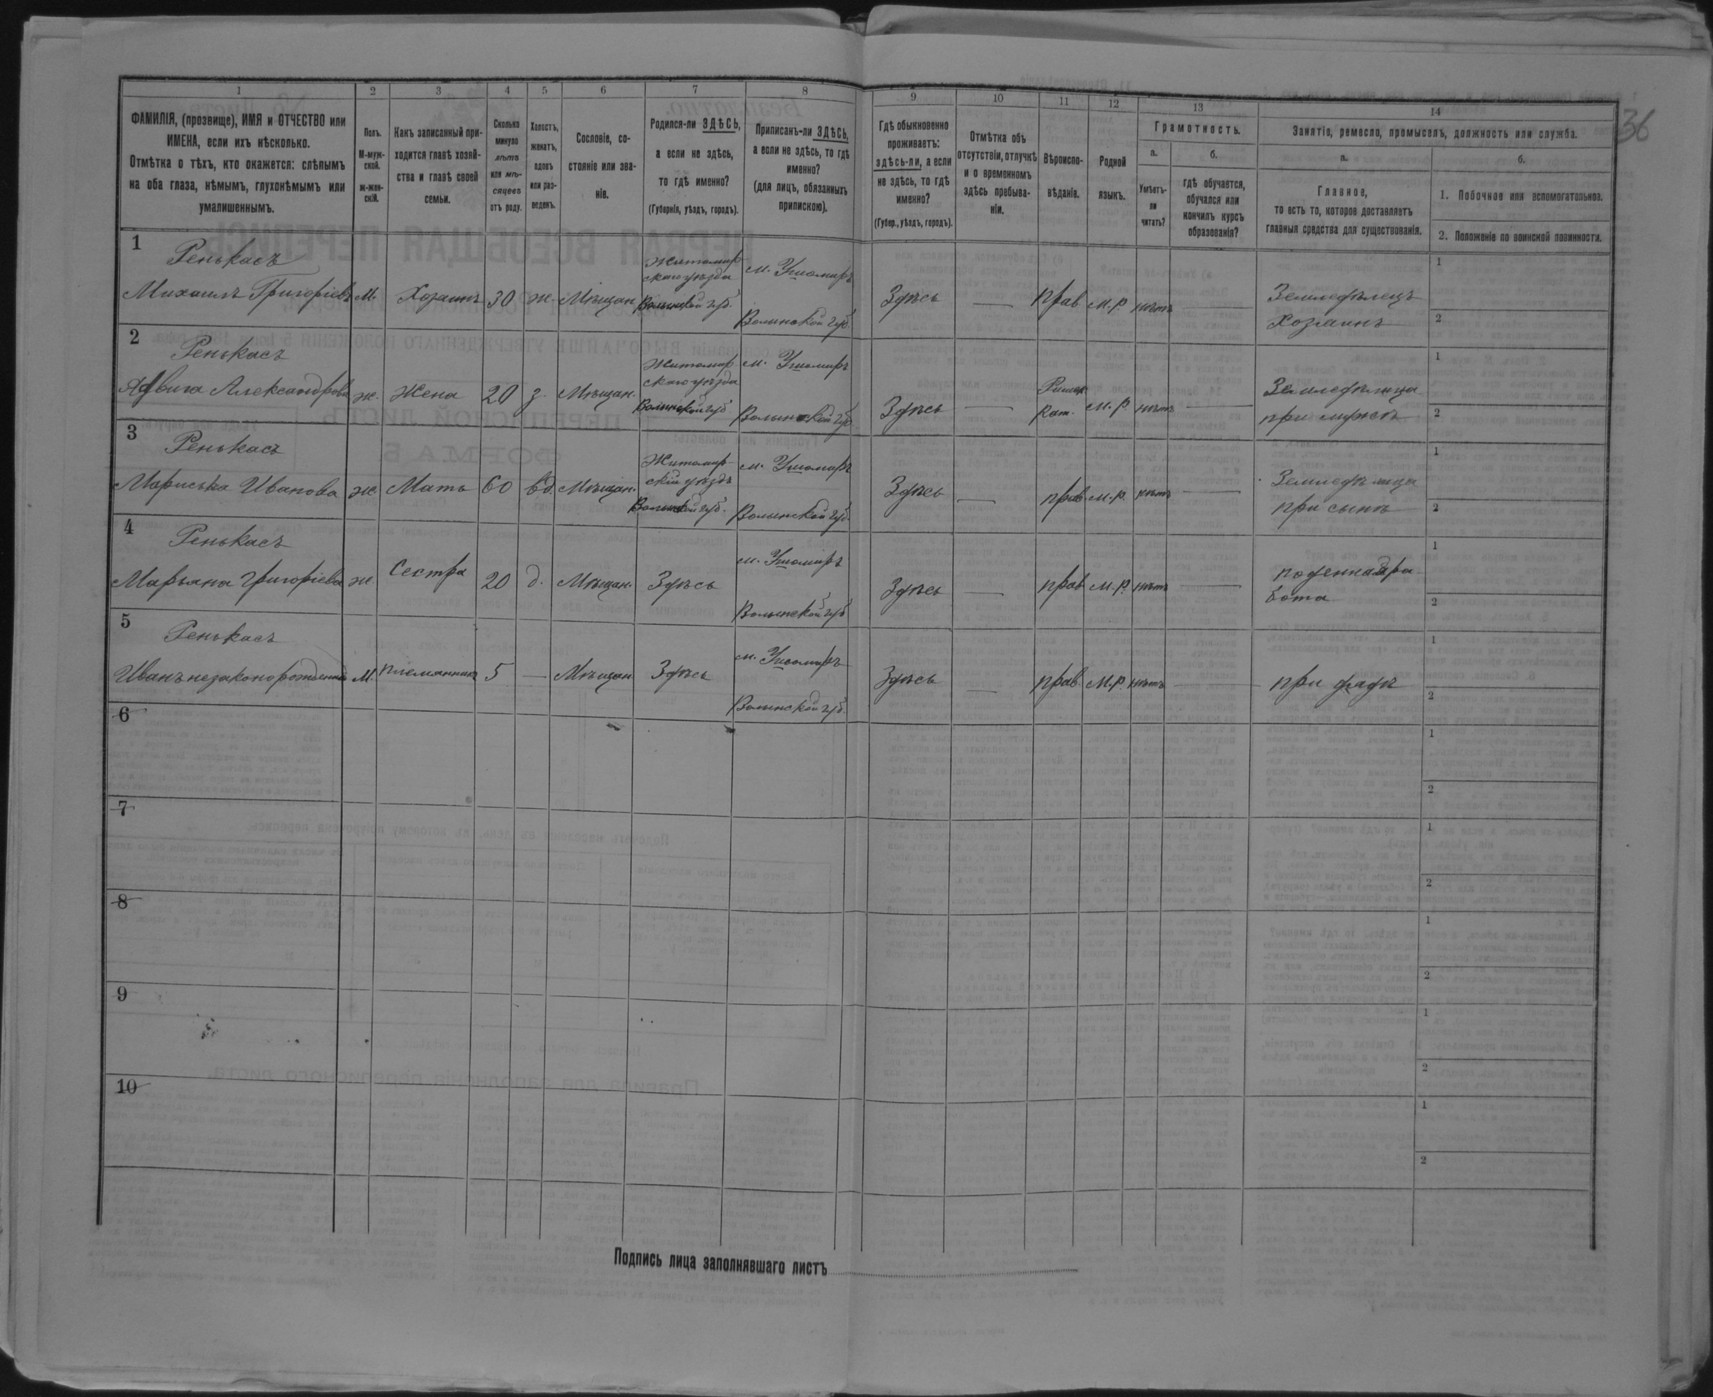 1 2 3 4 5 6 7 8 9 10 11 12 13 14
36
ФАМИЛІЯ, (прозвище), ИМЯ и ОТЧЕСТВО или
ИМЕНА, если ихъ нѣсколько.
Отмѣтка о тѣхъ, кто окажется: слѣпымъ
на оба глаза, нѣмымъ, глухонѣмымъ или
умалишеннымъ.
Полъ.
М-муж-
ской.
ж-жен-
скій.
Какъ записанный при-
ходится главѣ хозяй-
ства и главѣ своей
семьи.
Сколько
минуло
лѣтъ
или мѣ-
сяцевъ
отъ роду.
Холостъ,
женатъ,
вдовъ
или раз-
веденъ.
Сословіе, со-
стояніе или зва-
ніе.
Родился-ли ЗДѢСЬ,
а если не здѣсь,
то гдѣ именно?
(Губернія, уѣздъ, городъ).
Приписанъ-ли ЗДѢСЬ,
а если не здѣсь, то гдѣ
именно?
(для лицъ, обязанныхъ
припискою).
Гдѣ обыкновенно
проживаетъ:
здѣсь-ли, а если
не здѣсь, то гдѣ
именно?
(Губер., уѣздъ, городъ).
Отмѣтка объ
отсутствіи, отлучкѣ
и о временномъ
здѣсь пребыва-
ніи.
Вѣроиспо-
вѣданіе.
Родной
языкъ.
Грамотность.
а.
Умѣетъ-
ли
читать?
б.
гдѣ обучается,
обучался или
кончилъ курсъ
образованія?
Занятіе, ремесло, промыселъ, должность или служба.
а.
Главное,
то есть то, которое доставляетъ
главныя средства для существованія.
б.
1. Побочное или вспомогательное.
2. Положеніе по воинской повинности.
1
Ренькасъ
Михаилъ Григоріевъ м. Хозяинъ 30 ж. Мѣщан.
Житомир-
скаго уѣзда
Волынской губ.
м. Ушомиръ
Волынской губ.
Здѣсь — прав м.р. нѣтъ
Земледѣлецъ
Хозяинъ
1
2
2
Ренькасъ
Ядвига Александрова ж. Жена 20 з. Мѣщан.
Житомир
скаго уѣзда
Волынской губ.
м. Ушомиръ
Волынской губ.
Здѣсь —
Римск.
Кат. м.р. нѣтъ —
Земледѣлица
при мужѣ
1
2
3
Ренькасъ
Мариська Иванова ж Мать 60 вд. Мѣщан.
Житомир-
скій уѣздъ
Волынской губ.
м. Ушомиръ
Волынской губ.
Здѣсь — прав. м.р. нѣтъ —
Земледѣлица
при сынѣ
1
2
4
Ренькасъ
Марьяна Григоріева ж Сестра 20 д. Мѣщан. Здѣсь
м. Ушомиръ
Волынской губ
Здѣсь — прав. м.р. нѣтъ —
поденная ра
бота
1
2
5
Ренькасъ
Иванъ незаконорожденный М. племянникъ 5 — Мѣщан Здѣсь
м. Ушомиръ
Волынской губ.
Здѣсь — прав м.р. нѣтъ —
при дядѣ
1
2
6
1
2
7
1
2
8
1
2
9
1
2
10
1
2
Подпись лица заполнявшаго листъ